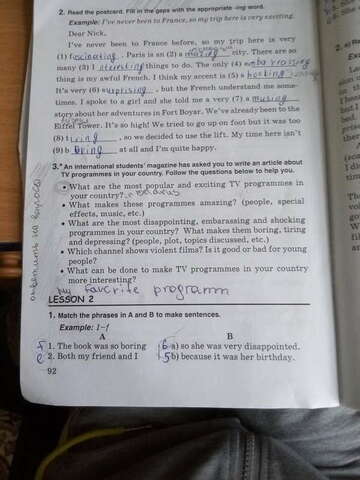 2. Read the postcard. Fill in the gaps with the appropriate -ing word.
Example: I've never been to France, so my trip here is very exciting.
Dear Nick,
I've never been to France before, so my trip here is very
(1) fascinating. Paris is an (2) a mazing city. There are so
many (3) I nteresting things to do. The only (4) em barrassing
thing is my awful French. I think my accent is (5) s hocking
It's very (6) surprising, but the French understand me some-
times. I spoke to a girl and she told me a very (7) a musing
story about her adventures in Fort Boyar. We've already been to the
Eiffel Tower. It's so high! We tried to go up on foot but it was too
(8) t iring, so we decided to use the lift. My time here isn't
(9) b oring at all and I'm quite happy.
3. An international students' magazine has asked you to write an article about
TV programmes in your country. Follow the questions below to help you.
• What are the most popular and exciting TV programmes in
your country? in Belarus
• What makes these programmes amazing? (people, special
effects, music, etc.)
• What are the most disappointing, embarassing and shocking
programmes in your country? What makes them boring, tiring
and depressing? (people, plot, topics discussed, etc.)
• Which channel shows violent films? Is it good or bad for young
people?
• What can be done to make TV programmes in your country
more interesting?
ответить на вопросы
My favorite programm
LESSON 2
1. Match the phrases in A and B to make sentences.
Example: 1–f
A B
f 1. The book was so boring 6 a) so she was very disappointed.
e 2. Both my friend and I 5 b) because it was her birthday.
92